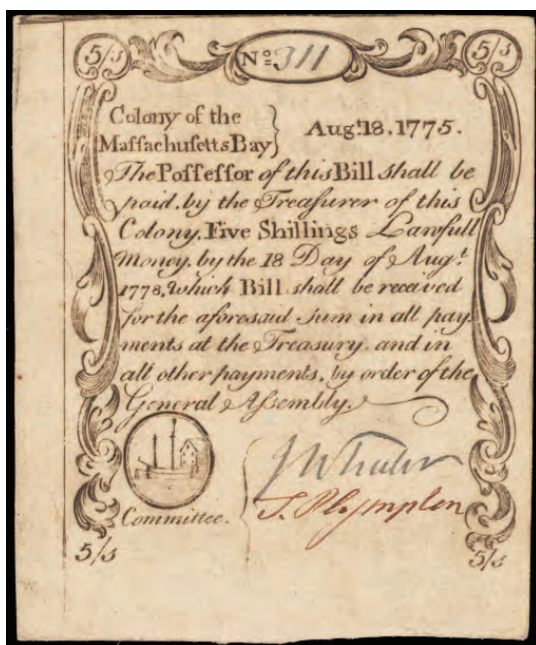 5/s Nº 311 5/s
Colony of the
Maſſachuſetts Bay } Augt. 18, 1775.
The Poſſeſſor of this Bill shall be
paid, by the Treaſurer of this
Colony, Five Shillings Lawfull
Money, by the 18 Day of Augt.
1778, which Bill shall be received
for the aforesaid Sum in all pay
ments at the Treaſury, and in
all other payments, by order of the
General Aſſembly.
J Wheeler
Committee. S. Plympton
5/s 5/s